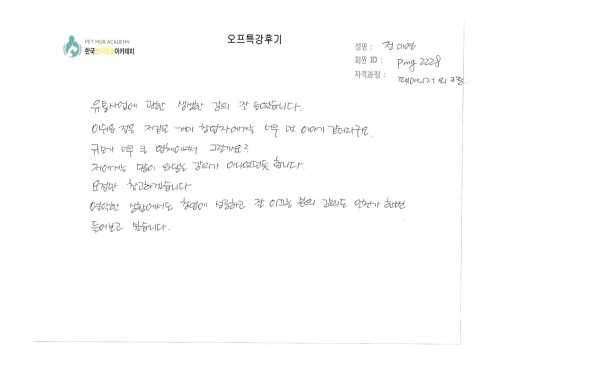 PET MGR ACADEMY
한국펫매니저아카데미
오프특강후기
성명 : 정미연
회원 ID : pmg2228
자격과정 : 펫매니저
유통사업에 관한 생생한 강의 잘 들었습니다.
아쉬운 점은 저같은 개미 창업자에게는 너무 먼 이야기 같더라구요.
규모가 너무 큰 업체여서 그럴까요?
저에게는 많이 와닿는 강의가 아니였던듯 합니다.
요점만 참고하겠습니다.
열악한 상황에서도 창업에 성공하고 잘 이끄는 분의 강의도 언젠가 한번
들어보고 싶습니다.